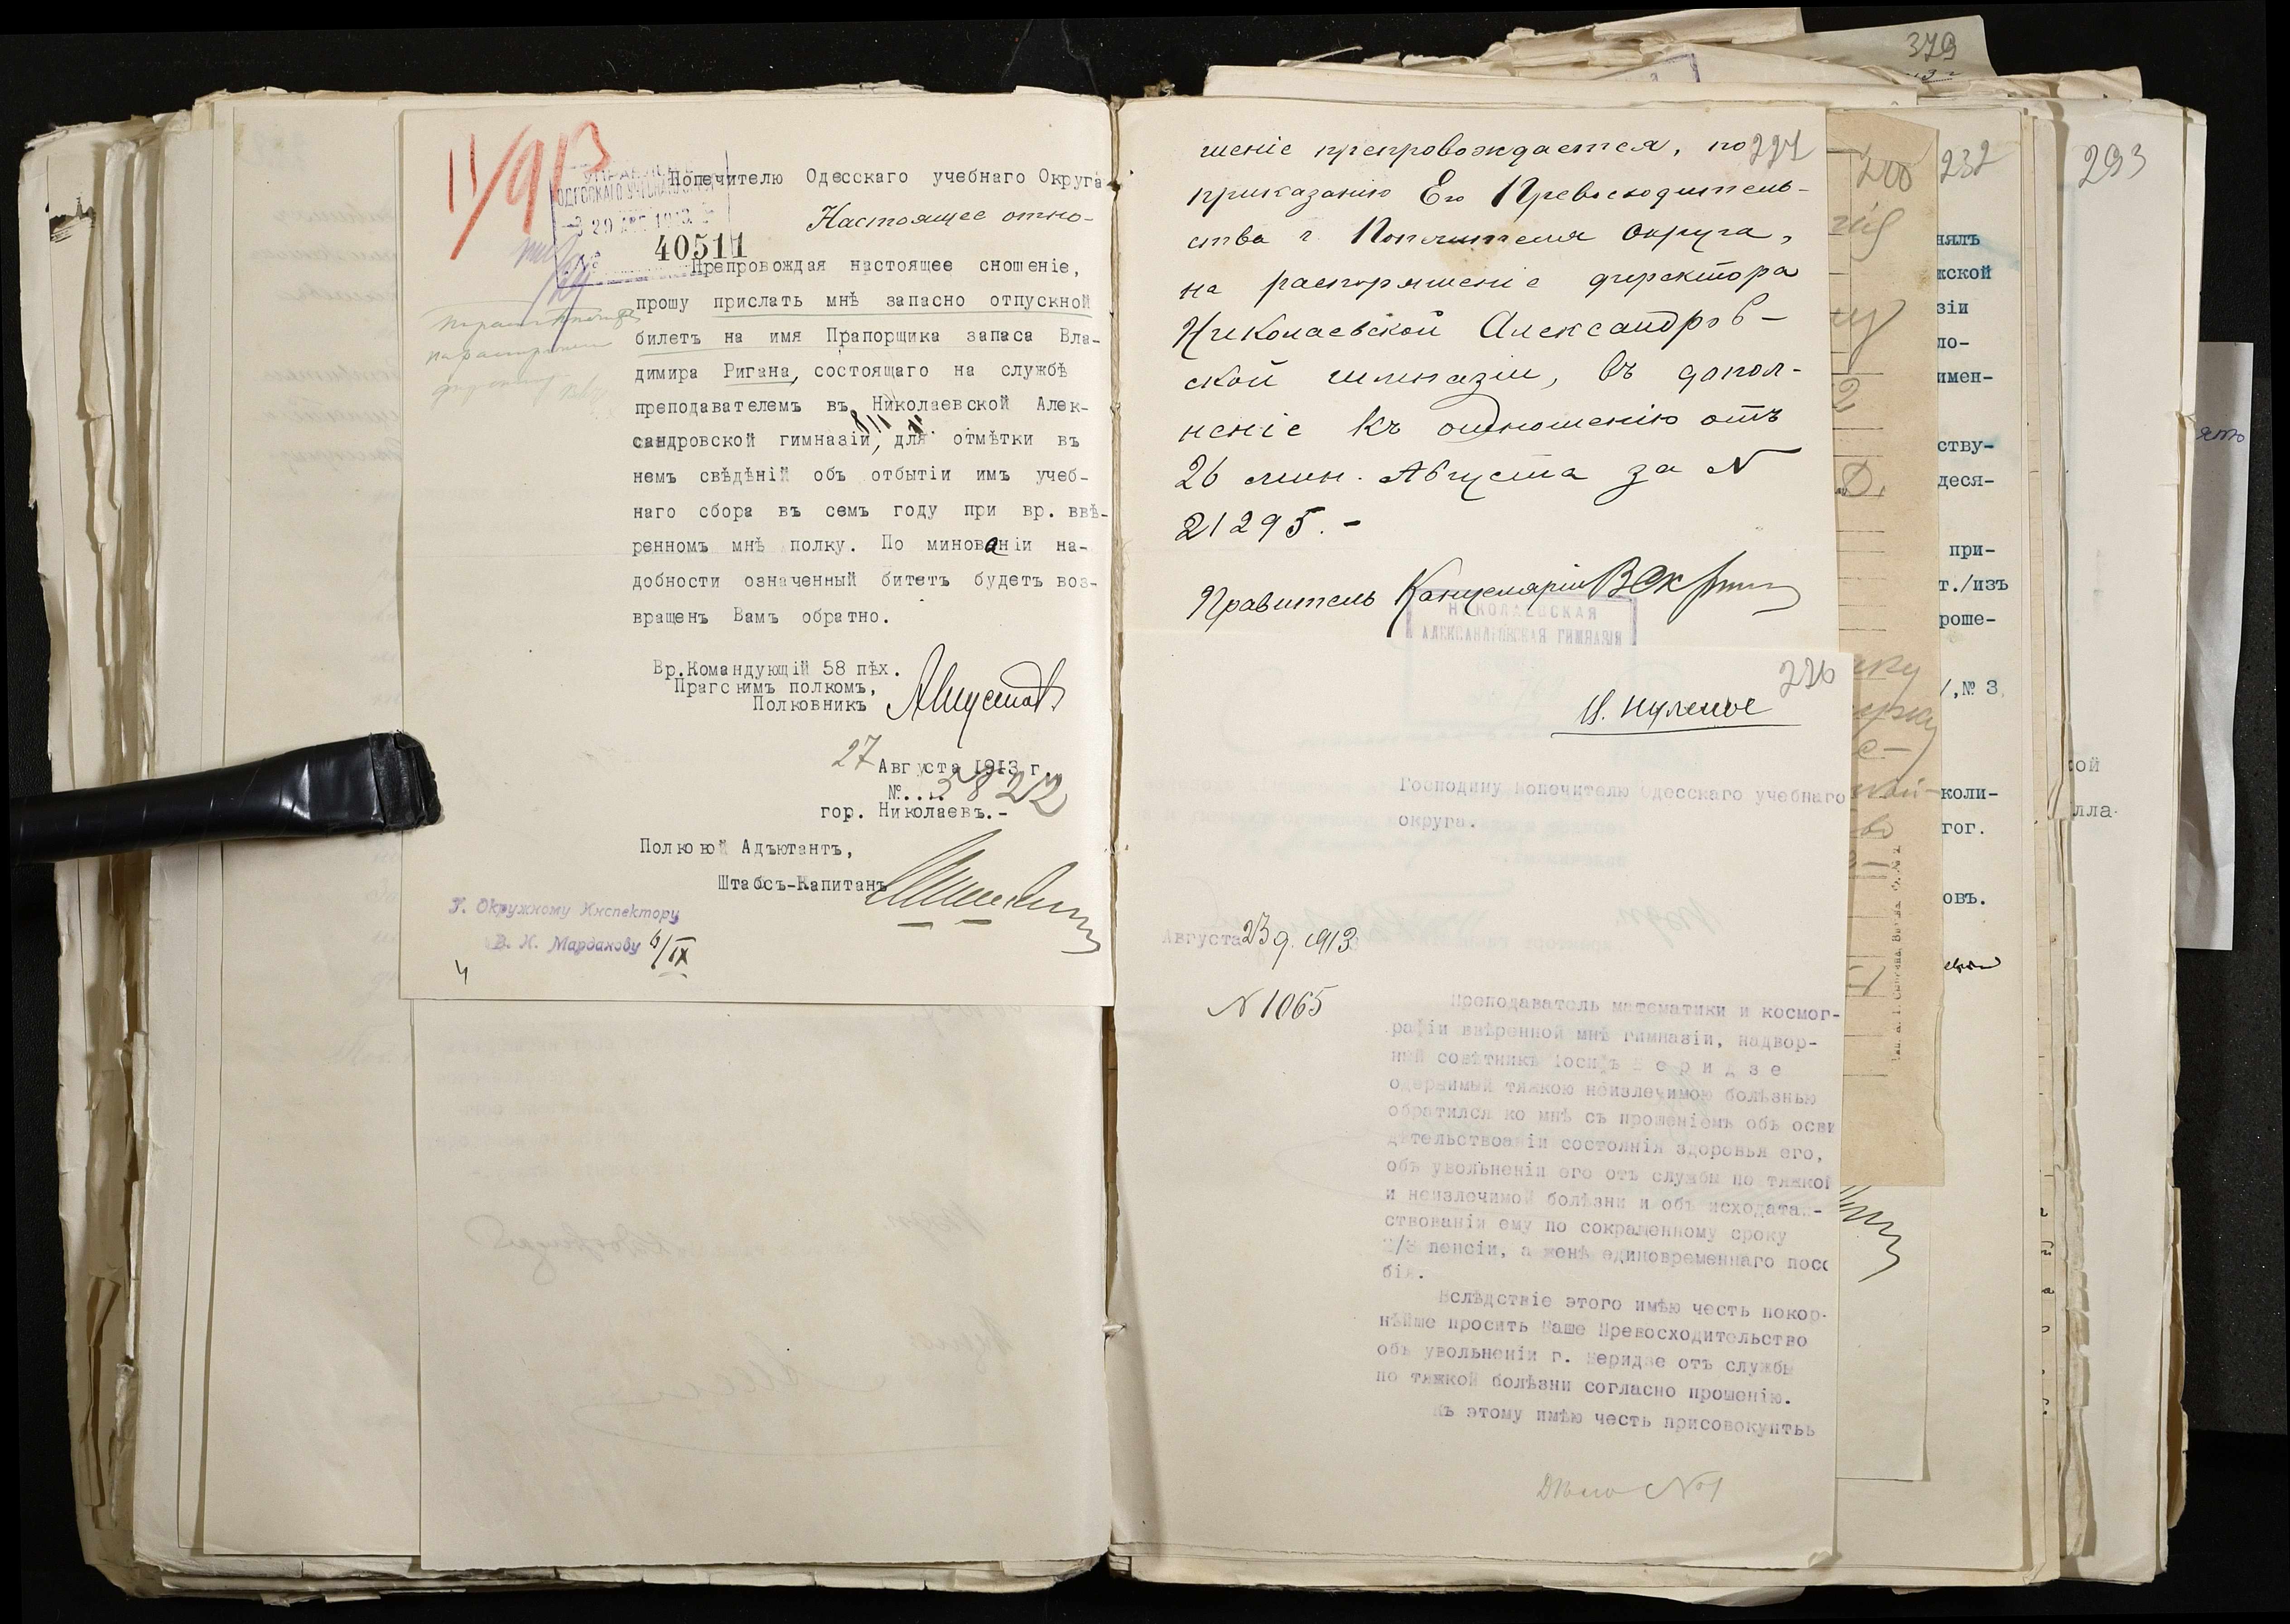 11/913
УПРАВЛЕНІЕ
ОДЕССКАГО УЧЕБНАГО
29 АВГ 1913
№
40511
Попечителю Одесскаго учебнаго Округа
Настоящее отно-
Препровождая настоящее сношеніе,
прошу прислать мнѣ запасно отпускной
билетъ на имя Прапорщика запаса Вла-
димира Ригана, состоящаго на службѣ
преподавателемъ въ Николаевской Алек-
сандровской гимназіи, для отмѣтки въ
немъ свѣдѣній объ отбытіи имъ учеб-
наго сбора въ семъ году при вр. ввѣ-
ренномъ мнѣ полку. По минованіи на-
добности означенный битетъ будетъ воз-
вращенъ Вамъ обратно.
Вр.Командующій 58 пѣх.
Прагскимъ полкомъ,
Полковникъ
27 Августа 1913 г.
№... 5822
гор. Николаевъ.-
Полковой Адъютантъ,
Штабсъ-Капитанъ
Г. Окружному Инспектору
В. Н. Марданову 6/IX
4
шеніе препровождается, по
приказанію Его Превосходитель-
ства г. Попечителя Округа,
на распоряженіе директора
Николаевской Александров-
ской гимназіи, въ допол-
неніе къ отношенію отъ
26 мин. Августа за N
21295.-
Правитель Канцеляріи
НИКОЛАЕВСКАЯ
АЛЕКСАНДРОВСКАЯ ГИМНАЗІЯ
Господину Попечителю Одесскаго учебнаго
округа.
Августа 23 д. 1913
N 1065
Преподаватель математики и космог-
рафіи ввѣренной мнѣ гимназіи, надвор-
ный совѣтникъ Іосифъ еридзе
одержимый тяжкою неизлечимою болѣзнью
обратился ко мнѣ съ прошеніемъ объ осви
дѣтельствоаніи состоянія здоровья его,
объ увольненіи его отъ службы по тяжкой
и неизлечимой болѣзни и объ исходатай-
ствованіи ему по сокращенному сроку
2/3 пенсіи, а женѣ единовременнаго посо
бія.
Вслѣдствіе этого имѣю честь покор-
нѣйше просить Ваше Превосходительство
объ увольненіи г. еридзе отъ службы
по тяжкой болѣзни согласно прошенію.
Къ этому имѣю честь присовокупть
Дѣло №1
379
232
293
нялъ
жской
зіи
ло-
имен-
ству-
деся-
при-
т./изъ
роше-
/,№ 3
коли-
гог.
овъ.
ой
лла-